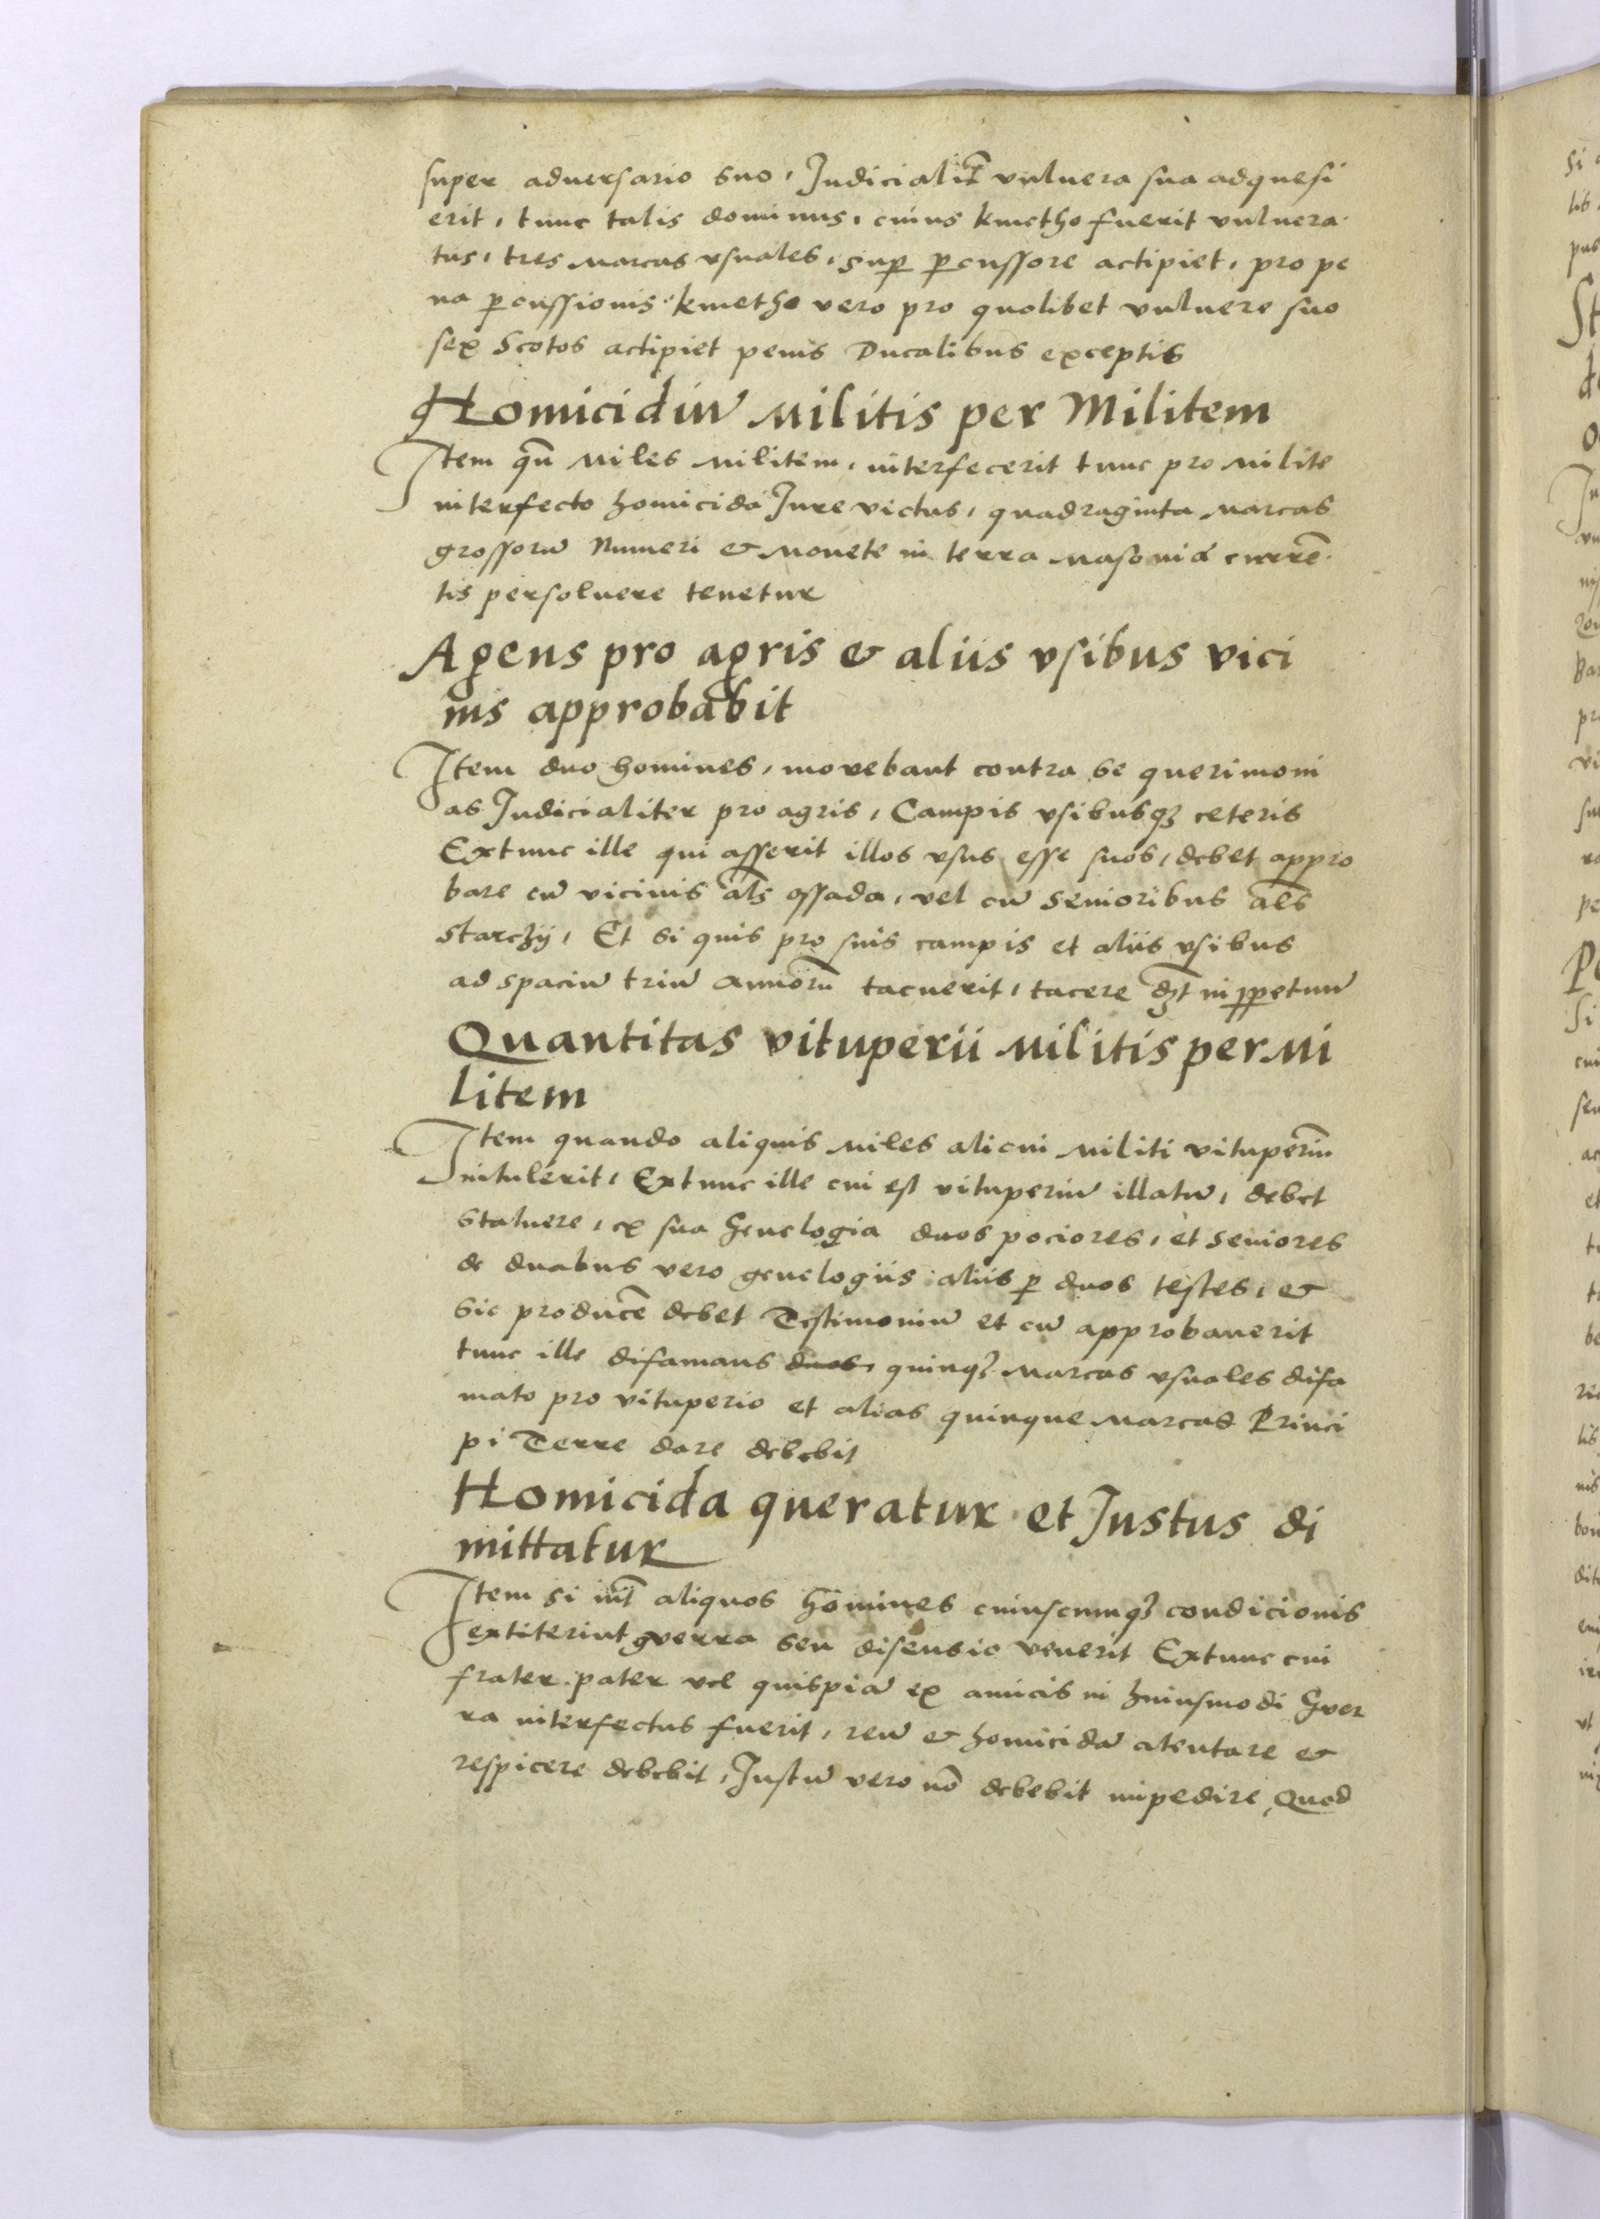 super aduersario suo, Judicialit̃ vulnera sua adquesi
erit, tunc talis dominus, cuius kmetho fuerit vulnera
tus, tres Marcas vsuales, suꝑ ꝑcussore actipiet, pro pe
na ꝑcussionis kmetho vero pro quolibet vulnere suo
sex Scotos actipiet penis Ducalibus exceptis
Homicidiū Militis per Militem
Item qñ Miles Militem, interfecerit tunc pro Milite
interfecto homicida Jure victus, quadraginta Marcas
grossorū Numeri & Monete in terra Masouie currē
tis persoluere tenetur
Agens pro agris & aliis vsibus vici
nis approbabit
Item duo homines, mouebant contra se querimoni
as Judicialiter pro agris, Campis vsibusqꝫ ceteris
Extunc ille qui asserit illos vsus esse suos, debet appro
bare cū vicinis als ossada, vel cū senioribus als
starczÿ, Et si quis pro suis campis et aliis vsibus
ad spaciū triū annorū tacuerit, tacere dꝫt inꝑpetuū
Quantitas vituperii Militis per Mi
litem
Item quando aliquis Miles alicui Militi vituperiū
intulerit, Extunc ille cui est vituperiū illatū, debet
statuere, ex sua Genelogia duos pociores, et seniores
de duabus vero genelogiis aliis ꝑ duos testes, &
sic producē debet Testimoniū et cū approbauerit
tunc ille difamans duos, quinqꝫ Marcas vsuales difa
mato pro vituperio et alias quinque Marcas Princi
pi Terre dare debebit
Homicida queratur et Justus di
mittatur
Item si int̃ aliquos homines cuiuscunqꝫ condicionis
extiterint guerra seu disensio venerit Extunc cui
frater pater vel quispiā ex amicis in huiusmodi Guer
ra interfectus fuerit, reū & homicidā atentare &
respicere debebit, Justū vero nō debebit impedire, Quod